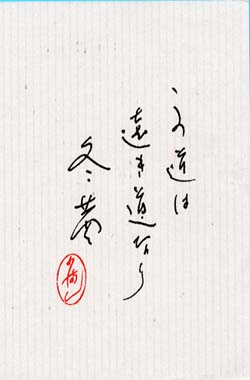 この道は
遠き道なり
冬菫